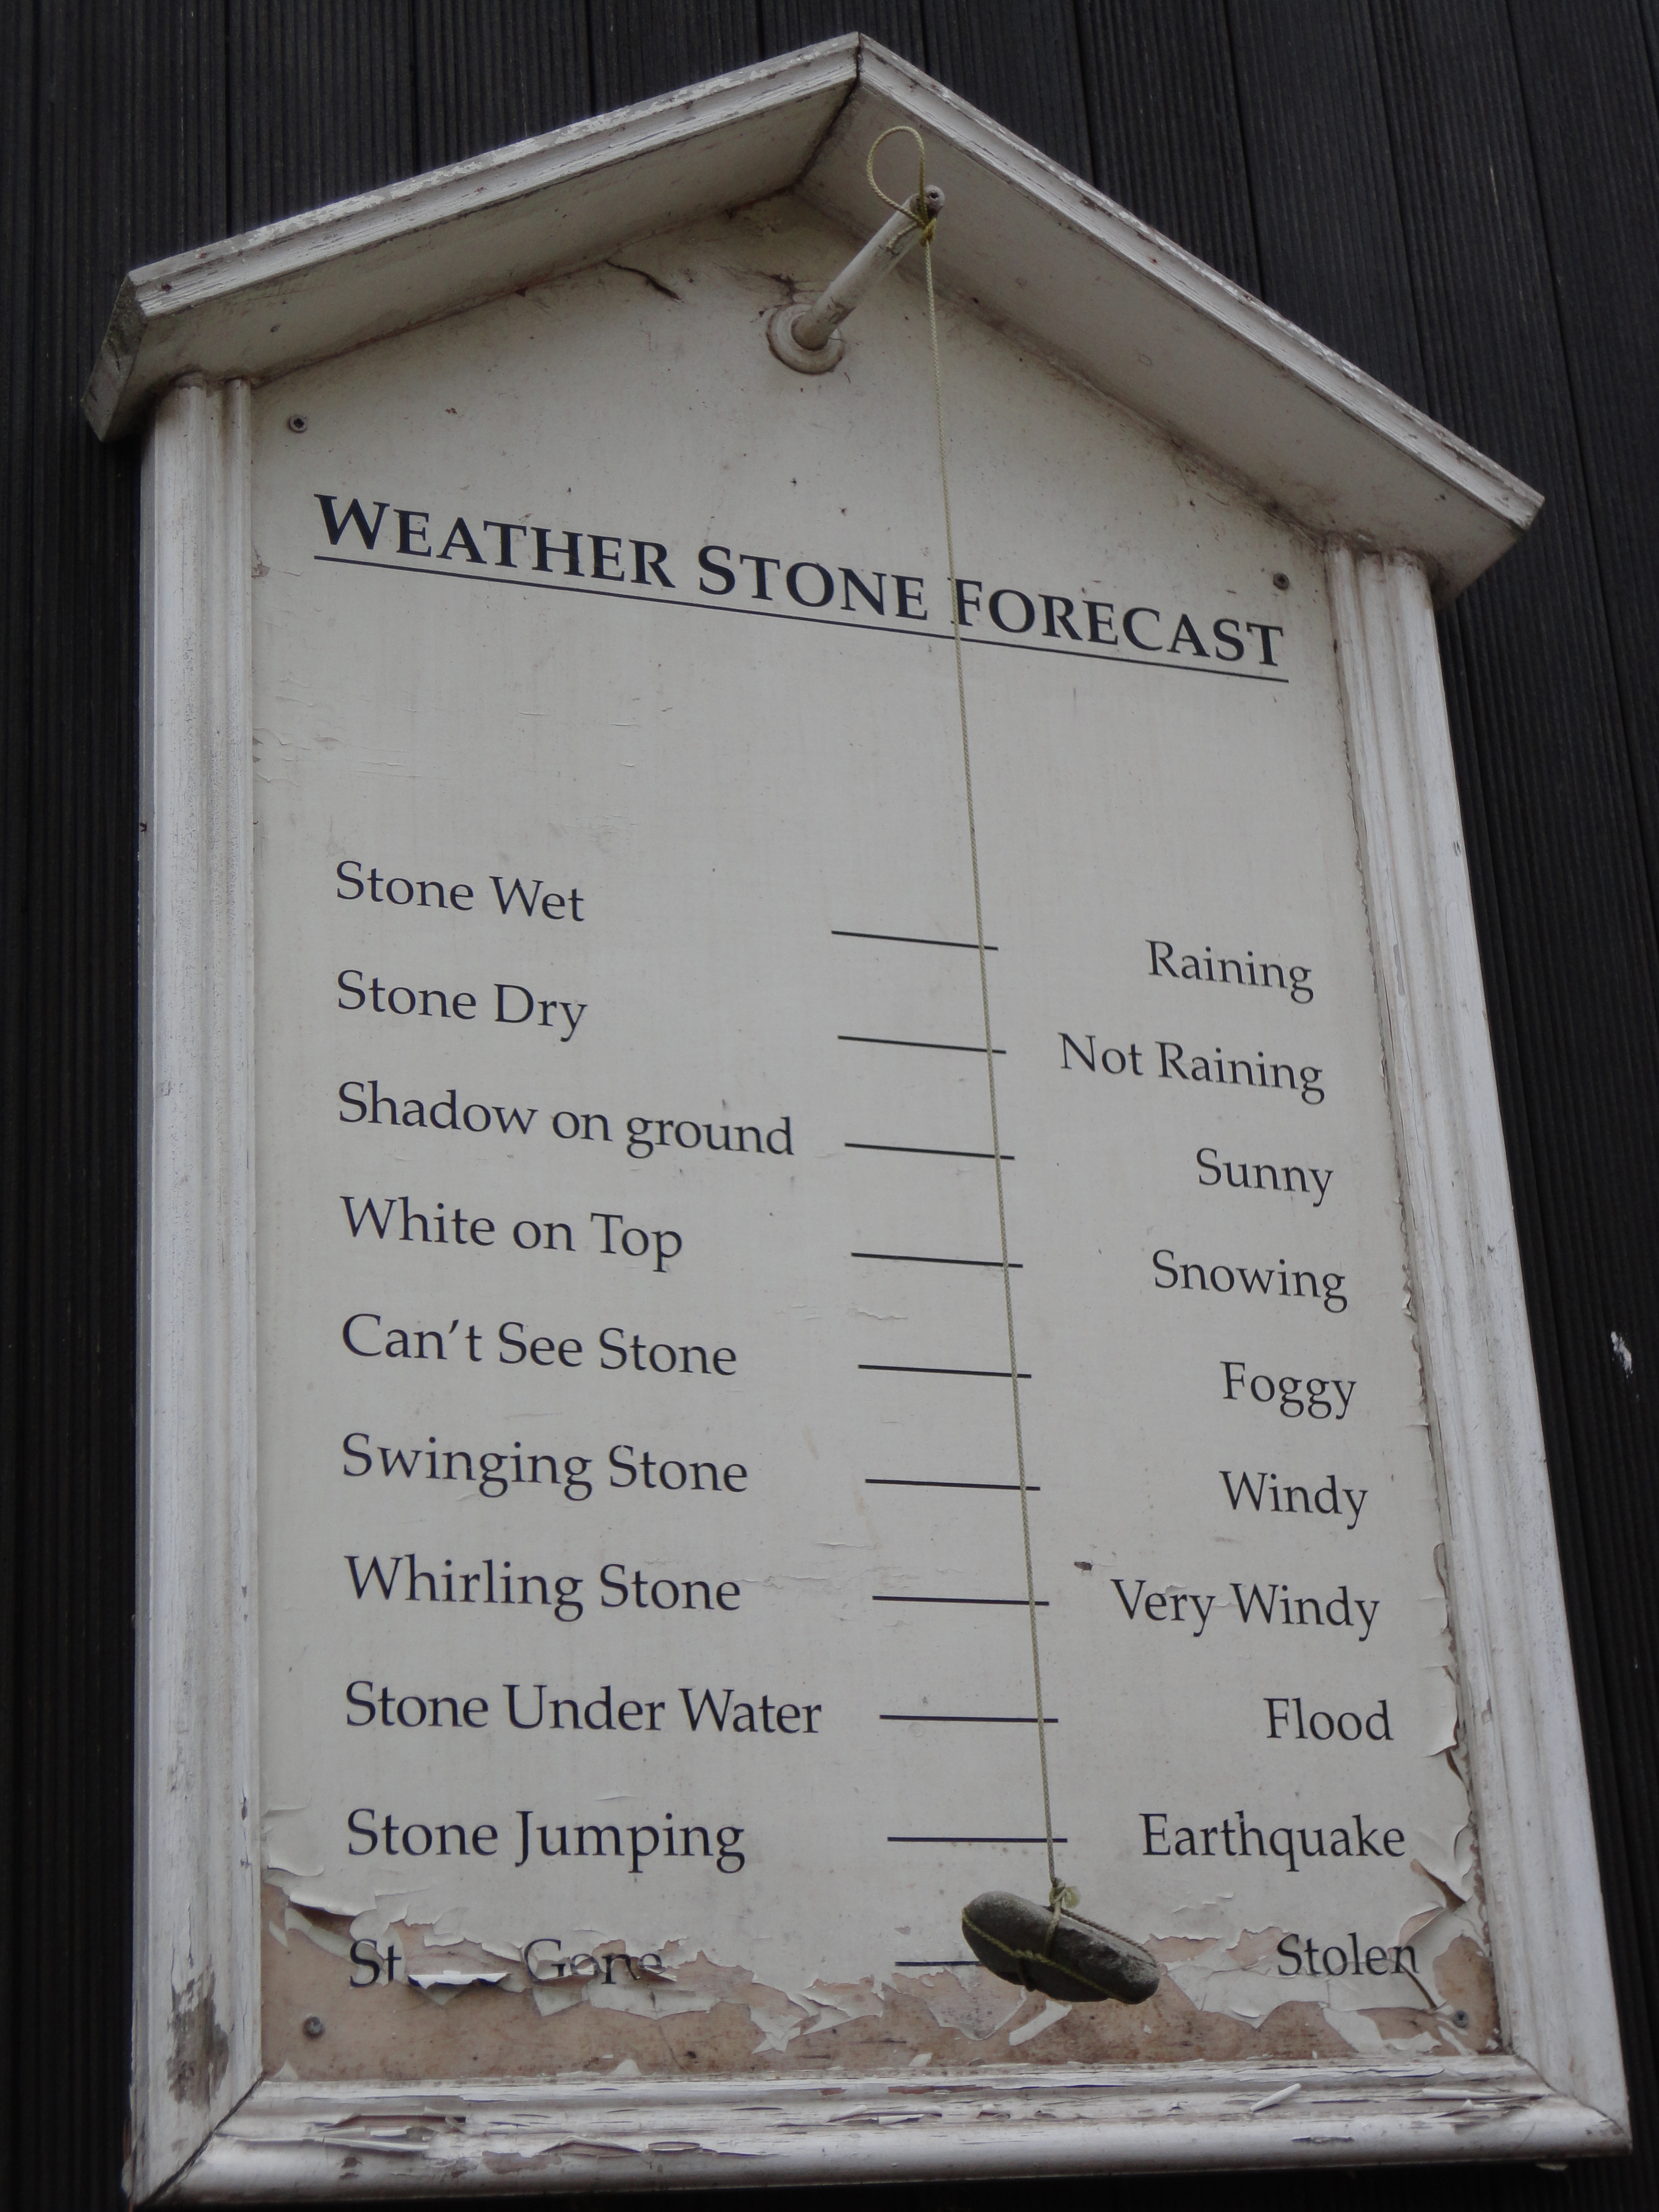 WEATHER STONE FORECAST
Stone Wet — Raining
Stone Dry — Not Raining
Shadow on ground — Sunny
White on Top — Snowing
Can't See Stone — Foggy
Swinging Stone — Windy
Whirling Stone — Very Windy
Stone Under Water — Flood
Stone Jumping — Earthquake
Gone — Stolen